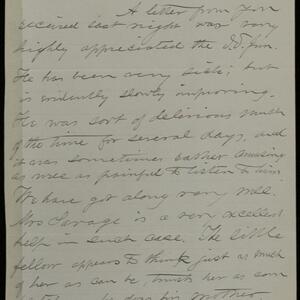 A letter from you
received last night was very
highly appreciated
He has been very sick; but
is evidently slowly improving.
He was sort of delirious much
of the time for several days, and
it was sometimes rather amusing
as well as painful to listen to him.
We have got along very well.
Mrs Savage is a very excellent
help in such case. The little
fellow appears to think just as much
of her as can be, trusts her as soon
as he does his mother